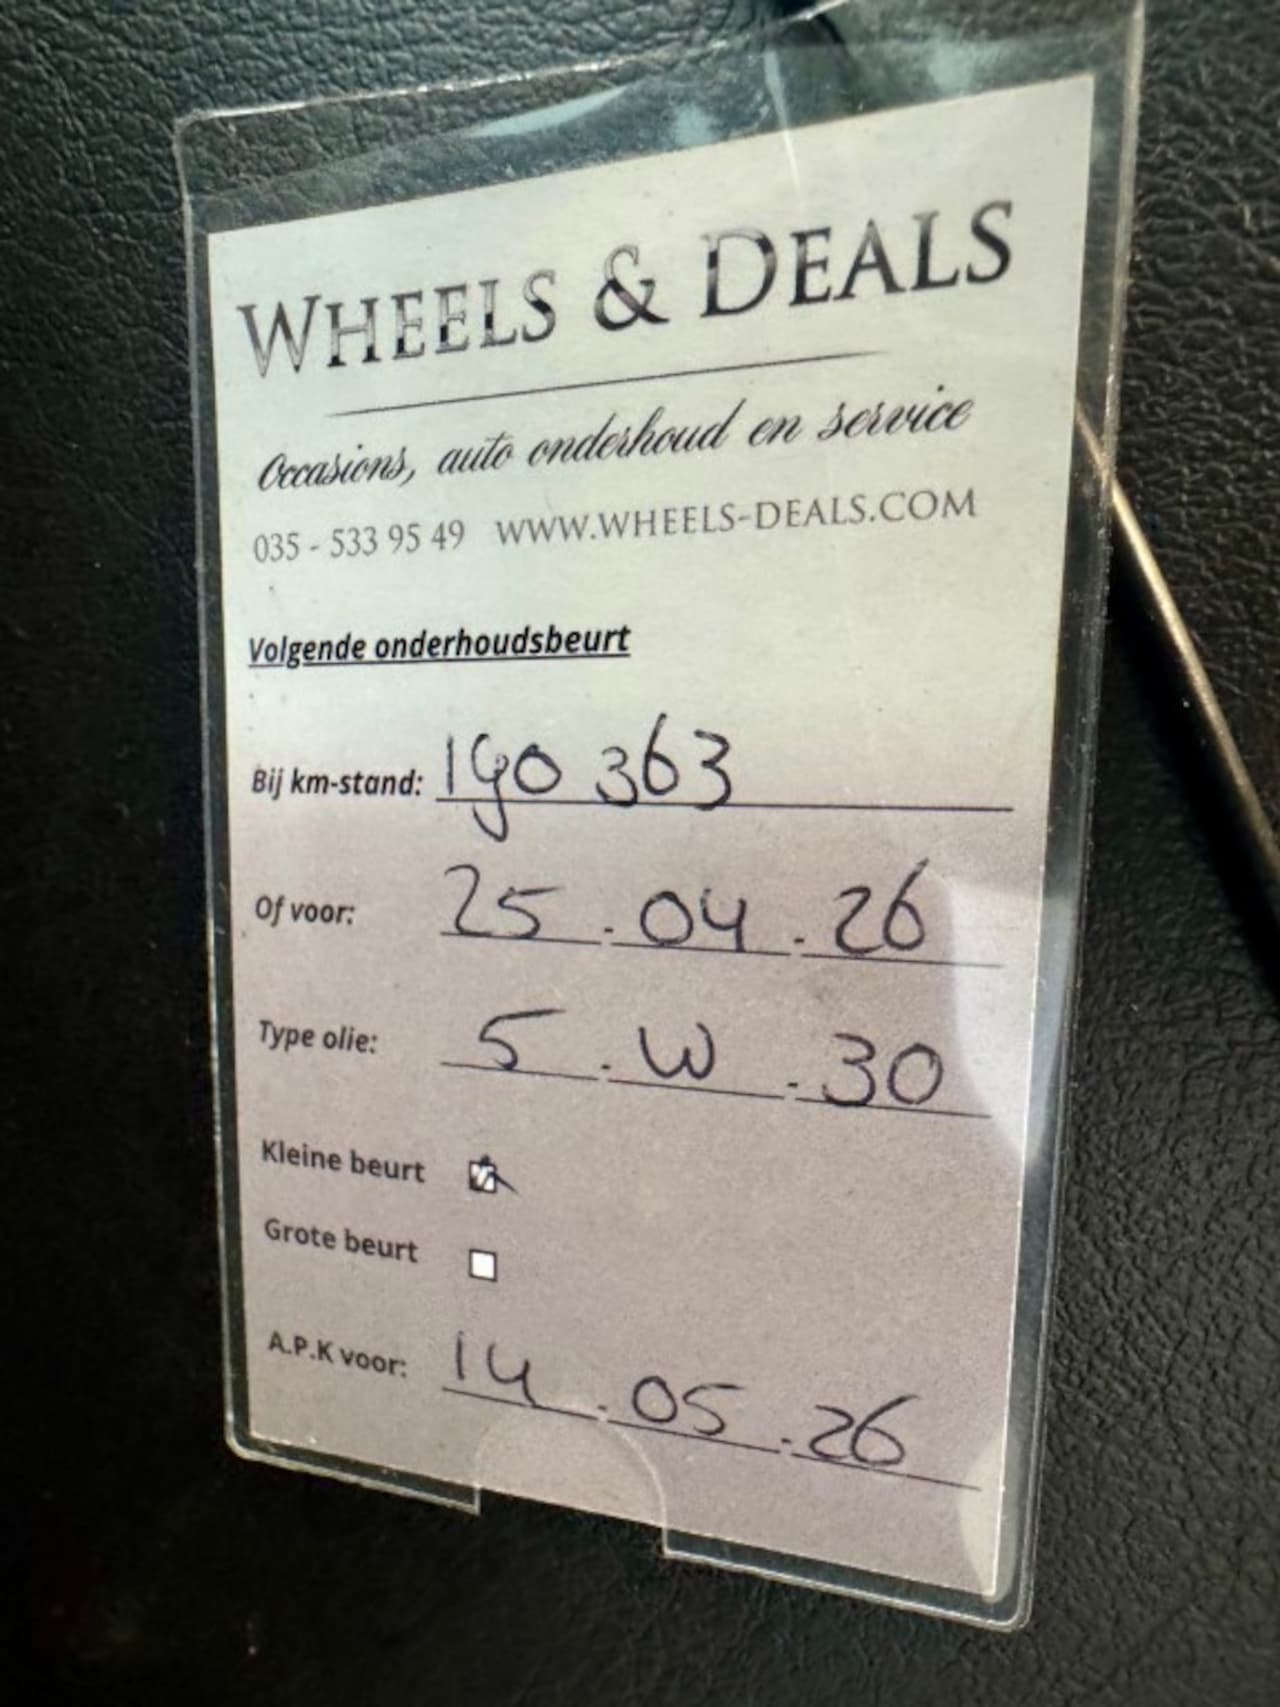 WHEELS & DEALS
Occasions, auto onderhoud en service
035 - 533 95 49 WWW.WHEELS-DEALS.COM
Volgende onderhoudsbeurt
Bij km-stand: 190 363
Of voor: 25 . 04 . 26
Type olie: 5 . W . 30
Kleine beurt
Grote beurt
A.P.K voor: 14 . 05 . 26